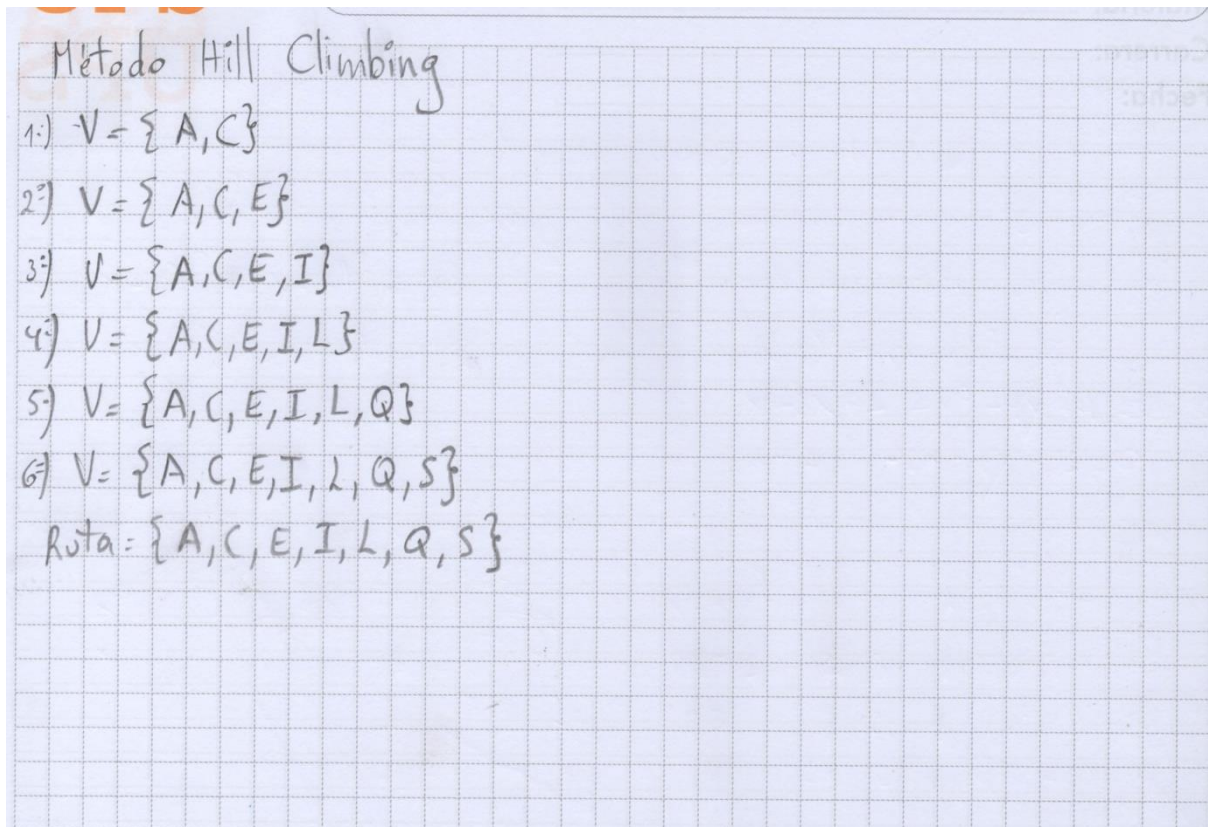 Método Hill Climbing
1:) V = { A, C}
2:) V = { A, C, E}
3:) V = {A, C, E, I}
4:) V = {A, C, E, I, L}
5:) V = {A, C, E, I, L, Q}
6:) V = {A, C, E, I, L, Q, S}
Ruta = { A, C, E, I, L, Q, S}
Carrera:
Fecha: